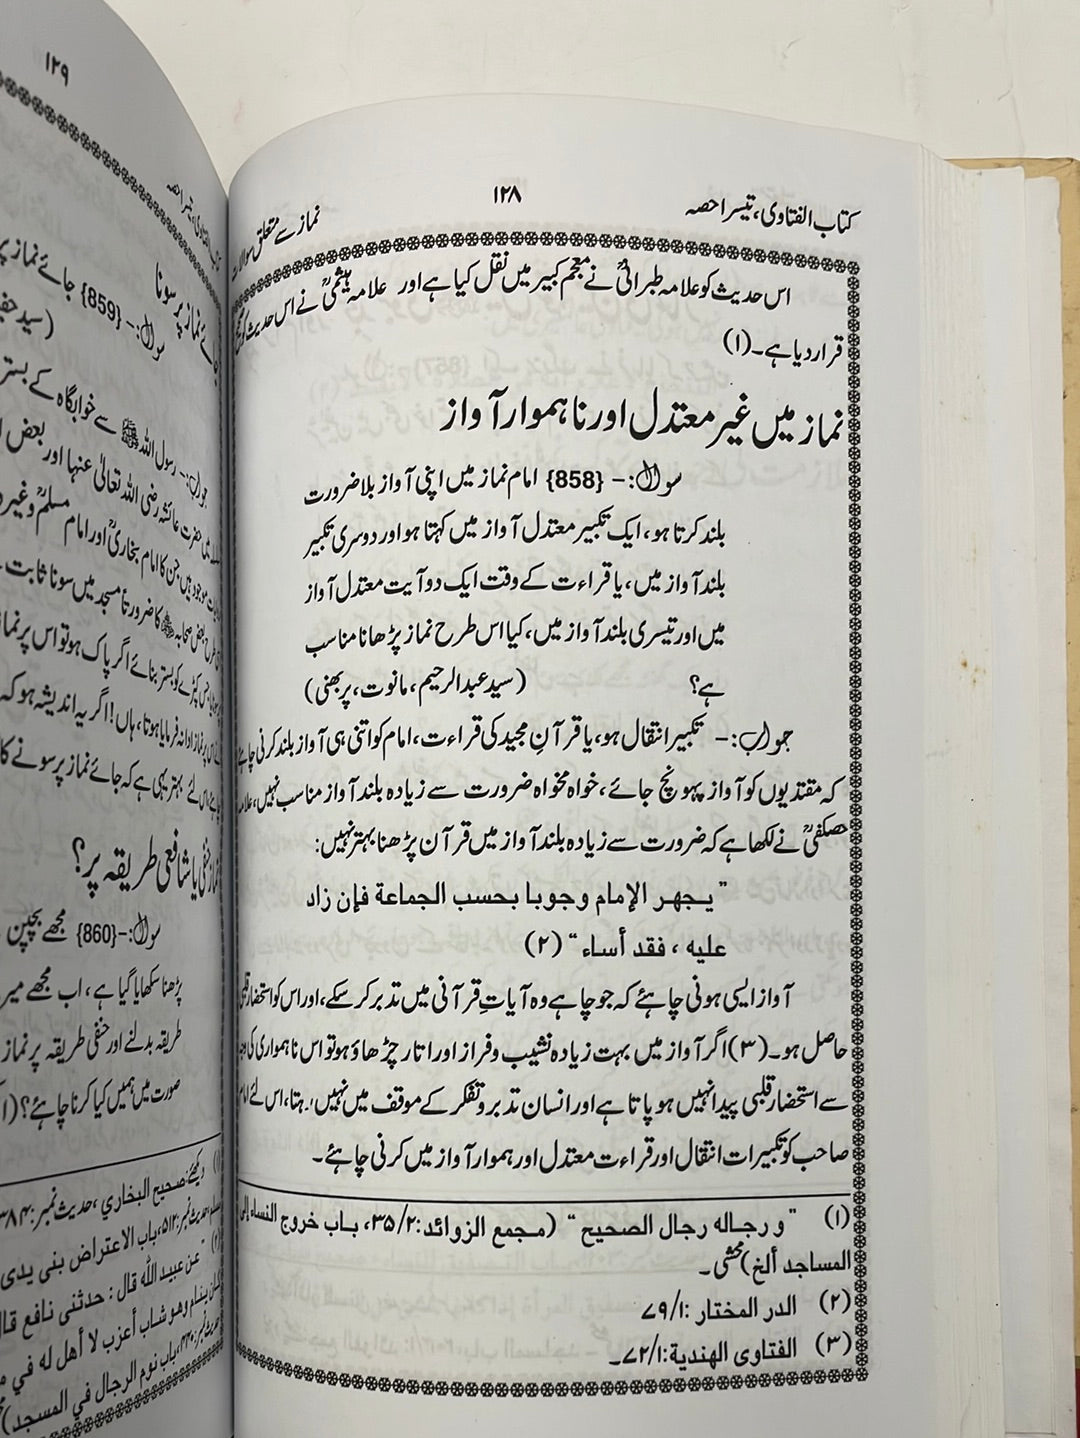 کتاب الفتاوی، تیسرا حصہ
۱۲۸
نماز سے متعلق سوالات
اس حدیث کو علامہ طبرانیؒ نے معجم کبیر میں نقل کیا ہے اور علامہ ہیثمیؒ نے اس حدیث کو صحیح
قرار دیا ہے۔(۱)
نماز میں غیر معتدل اور ناہموار آواز
سوال:- {858} امام نماز میں اپنی آواز بلا ضرورت
بلند کرتا ہو، ایک تکبیر معتدل آواز میں کہتا ہو اور دوسری تکبیر
بلند آواز میں، یا قراءت کے وقت ایک دو آیت معتدل آواز
میں اور تیسری بلند آواز میں، کیا اس طرح نماز پڑھانا مناسب
ہے؟ (سید عبد الرحیم، مانوت، پربھنی)
جواب:- تکبیر انتقال ہو، یا قرآنِ مجید کی قراءت، امام کو اتنی ہی آواز بلند کرنی چاہئے
کہ مقتدیوں کو آواز پہونچ جائے، خواہ مخواہ ضرورت سے زیادہ بلند آواز مناسب نہیں، علامہ
حصکفیؒ نے لکھا ہے کہ ضرورت سے زیادہ بلند آواز میں قرآن پڑھنا بہتر نہیں:
” يجهر الإمام وجوبا بحسب الجماعة فإن زاد
عليه ، فقد أساء “ (۲)
آواز ایسی ہونی چاہئے کہ جو چاہے وہ آیاتِ قرآنی میں تدبر کر سکے، اور اس کو استحضار قلبی
حاصل ہو۔(۳) اگر آواز میں بہت زیادہ نشیب و فراز اور اتار چڑھاؤ ہو تو اس ناہمواری کی وجہ
سے استحضار قلبی پیدا نہیں ہو پاتا ہے اور انسان تدبر و تفکر کے موقف میں نہیں رہتا، اس لئے امام
صاحب کو تکبیرات انتقال اور قراءت معتدل اور ہموار آواز میں کرنی چاہئے۔
(۱) ” و رجاله رجال الصحيح “ (مجمع الزوائد:۳۵/۲، باب خروج النساء إلى
المساجد ألخ) محشی۔
(۲) الدر المختار :۷۹/۱
(۳) الفتاوى الهندية:۷۲/۱۔
۱۲۹
جائے نماز پر سونا
سوال:- {859} جائے نماز پر
جواب:- رسول اللہ ﷺ سے خوابگاہ کے بستر
حضرت عائشہ رضی اللہ تعالیٰ عنہا اور بعض
موجود ہیں جن کا امام بخاریؒ اور امام مسلمؒ وغیرہ
بعض صحابہؓ کا ضرورتاً مسجد میں سونا ثابت
کپڑے کو بستر بنائے اگر پاک ہو تو اس پر نماز
نماز ادا نہ فرمایا ہوتا، ہاں! اگر یہ اندیشہ ہو کہ
بہتر یہی ہے کہ جائے نماز پر سونے کا
نماز حنفی یا شافعی طریقہ پر؟
سوال:-{860} مجھے بچپن
پڑھنا سکھایا گیا ہے، اب مجھے میر
طریقہ بدلنے اور حنفی طریقہ پر نماز
صورت میں ہمیں کیا کرنا چاہئے؟
(۱) دیکھئے: صحیح البخاري، حدیث نمبر:۳۸۴
حدیث نمبر:۵۱۲، باب الاعتراض بين يدى
(۲) ” عن عبيد الله قال : حدثني نافع قال
ينام وهو شاب أعزب لا أهل له في
حدیث نمبر:۴۴۰، باب نوم الرجال في المسجد)